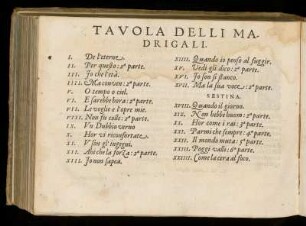 TAVOLA DELLI MA-
DRIGALI.
I. De l'eterne.
II. Per questo: 2ª parte.
III. Io che l'età.
IIII. Ma
V. O tempo o ciel.
VI. E sarebbe hora: 2ª parte.
VII. Le voglie e l'opre mie.
VIII. Non fu : 2ª parte.
IX. Un Dubbio verno
X. Hor vi riconfortate.
XI. V' son gl'ingegni.
XII. Anchi la forza: 2ª parte.
XIII. Io non sapea.
XIIII. Quando io penso al fuggir.
XV. Vedi gli dico: 2ª parte.
XVI. Io son sì stanco.
XVII. Ma la sua voce: 2ª parte.
SESTINA.
XVIII. Quando il giorno.
XIX. Non hebbe
XX. Hor come i rai: 3ª parte.
XXI. Parmi che sempre: 4ª parte.
XXII. Il mondo muta: 5ª parte.
XXIII. Poggi valli: 6ª parte.
XXIIII. Come la cera al foco.